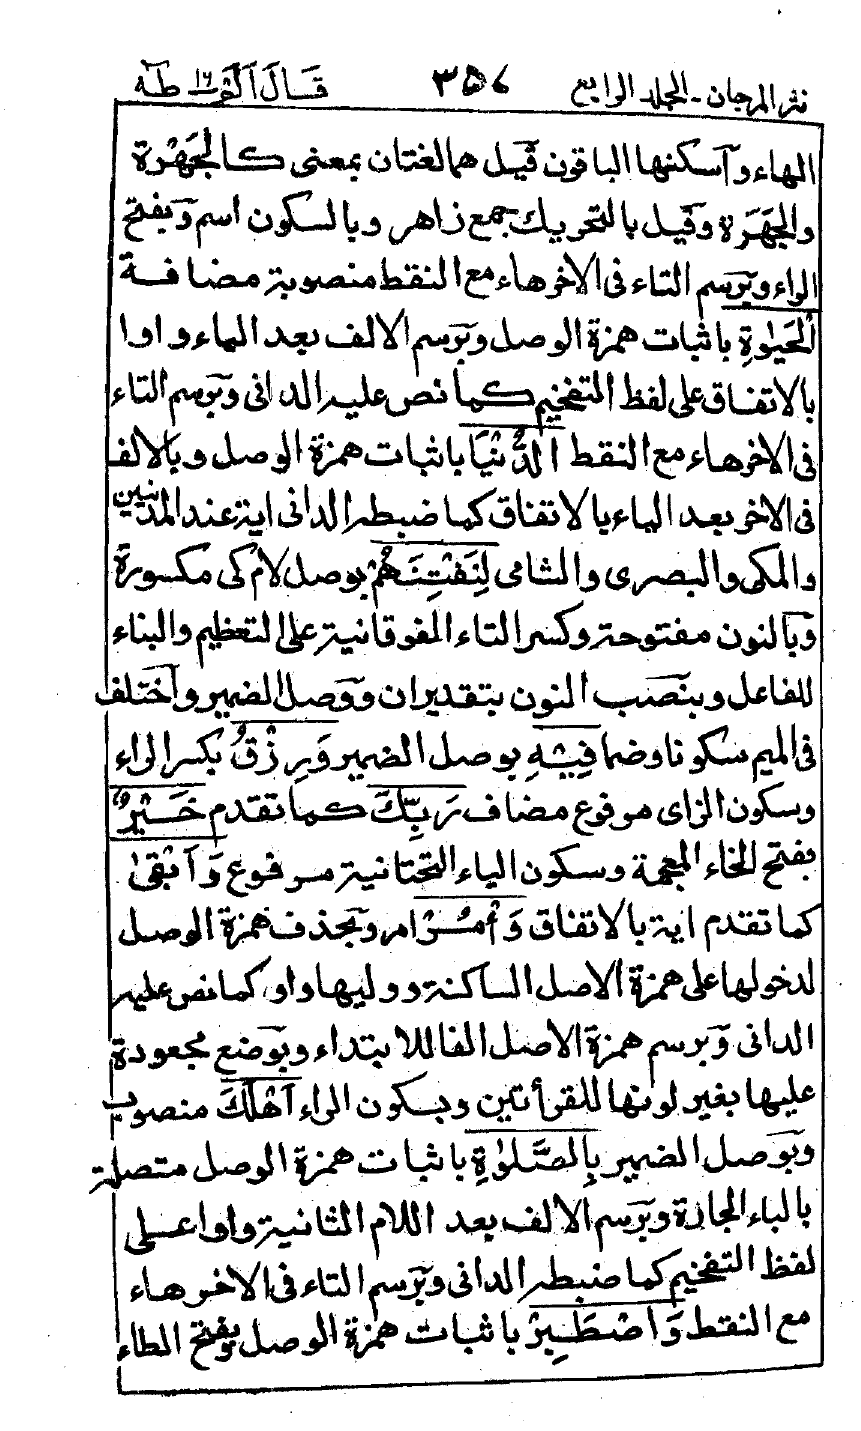 نثر المرجان ـ المجلد الرابع ٣٥٧ قَالَ أَلَمْ ١٦ طٰهٰ
الهاء وآسكنها الباقون قيل هما لغتان بمعنى كالجَهْرة
والجَهَرَة وقيل بالتحريك جمع زاهر وبالسكون اسم وَبفتح
الراء وبرسم التاء فى الاخرهاء مع النقط منصوبة مضافة
ٱلْحَيٰوةِ باثبات همزة الوصل وبرسم الالف بعد الياء واوا
بالاتفاق على لفظ التفخيم كما نص عليه الدانى وبرسم التاء
فى الاخرهاء مع النقط الدُّنْيَا باثبات همزة الوصل وبالالف
فى الاخر بعد الياء بالاتفاق كما ضبطه الدانى اية عند المدنيين
والمكى والبصرى والشامى لِنَفْتِنَهُمْ بوصل لام كى مكسورة
وَبالنون مفتوحة وكسر التاء الفوقانية على التعظيم والبناء
للفاعل وبنصب النون بتقدير ان ووصل الضمير وآختلف
فى الميم سكونا وضما فِيْهِ بوصل الضمير وَرِزْقُ بكسر الراء
وبسكون الزاى مرفوع مضاف رَبِّكَ كما تقدم خَيْرٌ
بفتح الخاء المعجمة وسكون الياء التحتانية مرفوع وَاَبْقٰى
كما تقدم اية بالاتفاق وَأْمُرْ امر وبحذف همزة الوصل
لدخولها على همزة الاصل الساكنة ووليها واو كما نص عليه
الدانى وَبرسم همزة الاصل الفا للابتداء وبوضع مجعودة
عليها بغير لونها للقرأتين وبسكون الراء اَهْلَكَ منصوب
وَبوصل الضمير بِالصَّلٰوةِ باثبات همزة الوصل متصلة
بالباء الجارة وبرسم الالف بعد اللام الثانية واوا على
لفظ التفخيم كما ضبطه الدانى وبرسم التاء فى الاخرهاء
مع النقط وَاصْطَبِرْ باثبات همزة الوصل وبفتح الطاء